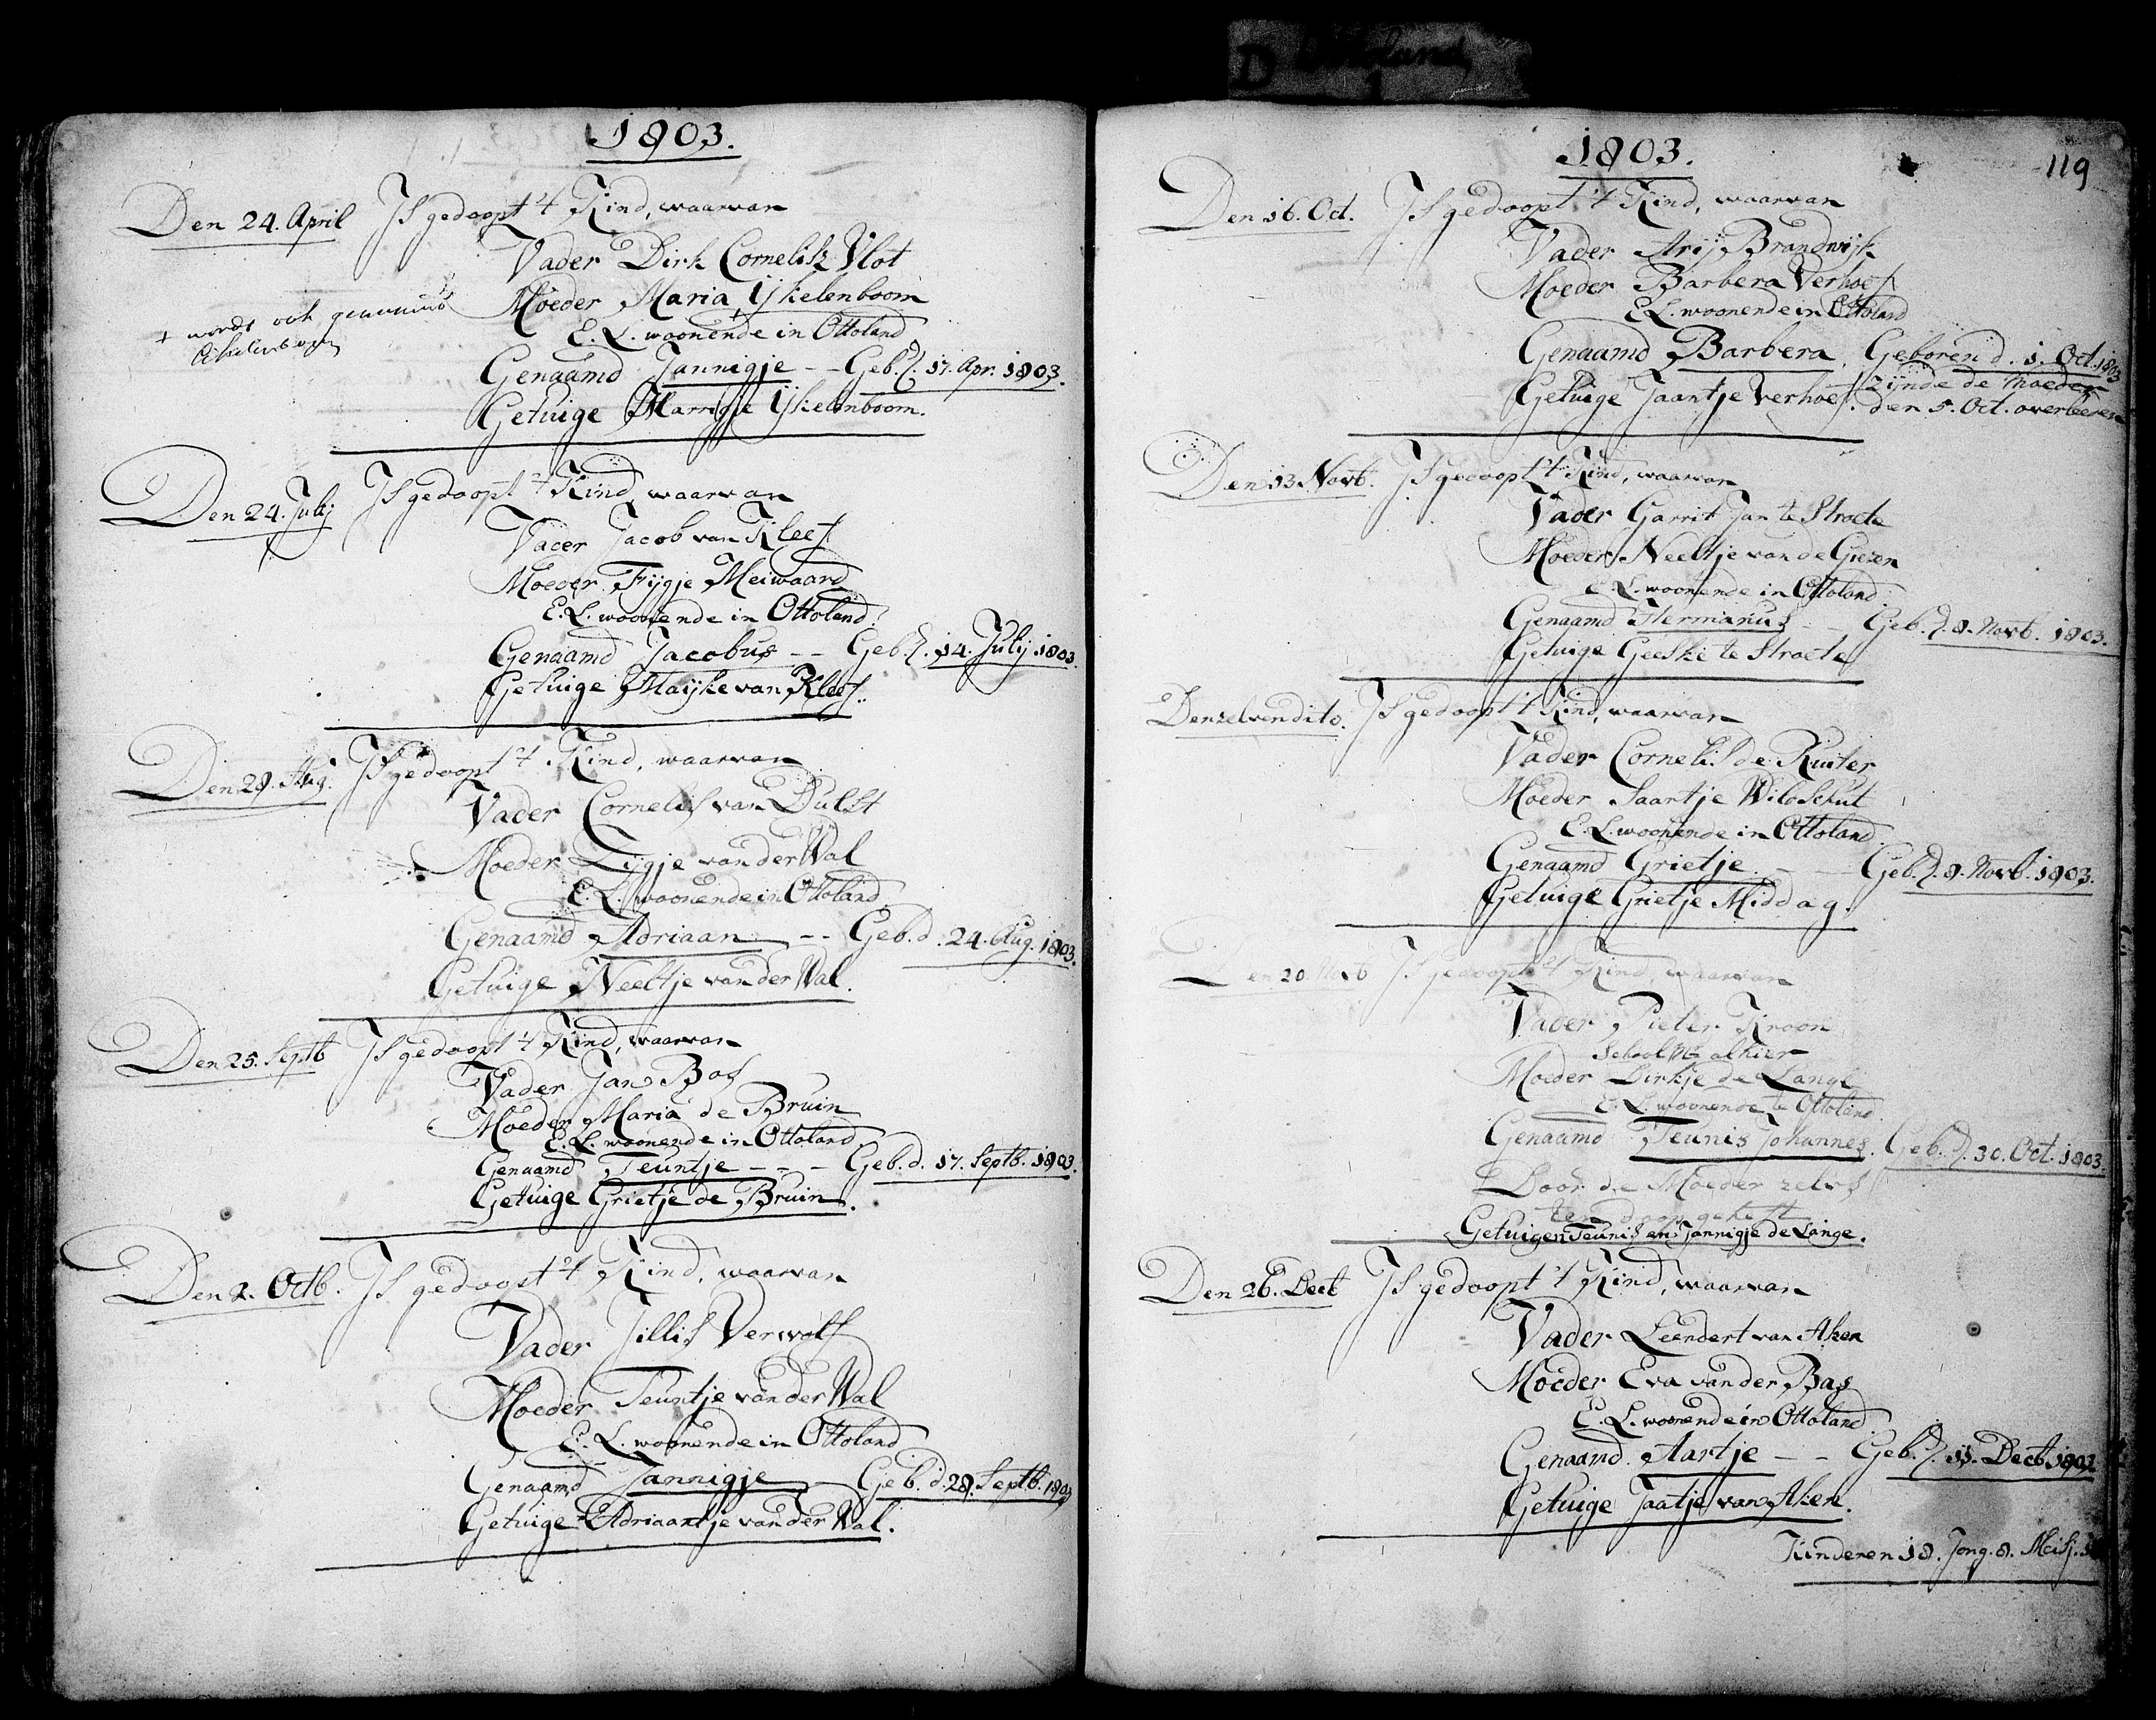 1803.
Den 24. April Is gedoopt 't Kind, waarvan
Vader Dirk Cornelisz Vlot
Moeder Maria Ykelenboom
+ wordt ook genaamd
E. L. woonende in Ottoland
Genaamd Jannigje -- Geb. d. 17. Apr. 1803.
Getuige Marrigje Ykelenboom.
Den 24. Julij Is gedoopt 't Kind, waarvan
Vader Jacob van Kleef
Moeder Fijgje Meiwaard
E. L. woonende in Ottoland.
Genaamd Jacobus -- Geb. d. 14. Julij 1803.
Getuige Maijke van Kleef.
Den 28. Aug. Is gedoopt 't Kind, waarvan
Vader Cornelis van Dulst
Moeder Zijgje van der Wal
E. L. woonende in Ottoland
Genaamd Adriaan -- Geb. d. 24. Aug. 1803.
Getuige Neeltje van der Wal.
Den 25. Septb Is gedoopt 't Kind, waarvan
Vader Jan Bos
Moeder Maria de Bruin
E. L. woonende in Ottoland
Genaamd Teuntje --- Geb. d. 17. Septb. 1803.
Getuige Grietje de Bruin.
Den 2. Octb. Is gedoopt 't Kind, waarvan
Vader Jillis Verwolf
Moeder Teuntje van der Wal
E. L. woonende in Ottoland
Genaamd Jannigje - Geb. d. 28. Septb. 1803
Getuige Adriaantje van der Wal.
1803.
119
Den 16. Oct. Is gedoopt 't Kind, waarvan
Vader Arij Brandwijk
Moeder Barbera Verhoef
E. L. woonende in Ottoland
Genaamd Barbera. Geboren d. 1. Oct. 1803
Getuige Jaantje Verhoef. zijnde de Moeder
den 5. Oct. overleeden
Den 13 Novb. Is gedoopt 't Kind, waarvan
Vader Garrit Jan te Stroete
Moeder Neeltje van de Giezen
E. L. woonende in Ottoland.
Genaamd Hermanus - Geb. d. 8. Novb. 1803.
Getuige Geeske te Stroete
Denzelven dito. Is gedoopt 't Kind, waarvan
Vader Cornelis de Ruiter
Moeder Saartje Wildschut
E. L. woonende in Ottoland
Genaamd Grietje. - Geb. d. 8. Novb. 1803.
Getuige Grietje Middag.
Den 20. Novb Is gedoopt 't Kind, waarvan
Vader Pieter Kroon
School Mr. alhier
Moeder Dirkje de Lange
E. L. woonende te Ottoland.
Genaamd Teunis Johannes. Geb. d. 30. Oct. 1803.
Door de Moeder zelvs
ten doop geheft
Getuigen Teunis en Jannigje de Lange.
Den 26. Decb Is gedoopt 't Kind, waarvan
Vader Leendert van Aken
Moeder Eva van der Bas
E. L. woonende in Ottoland
Genaamd Aartje -- Geb. d. 11. Decb 1803
Getuige Jaatje van Aken.
Kinderen 18. Jong. 8. Meisj.